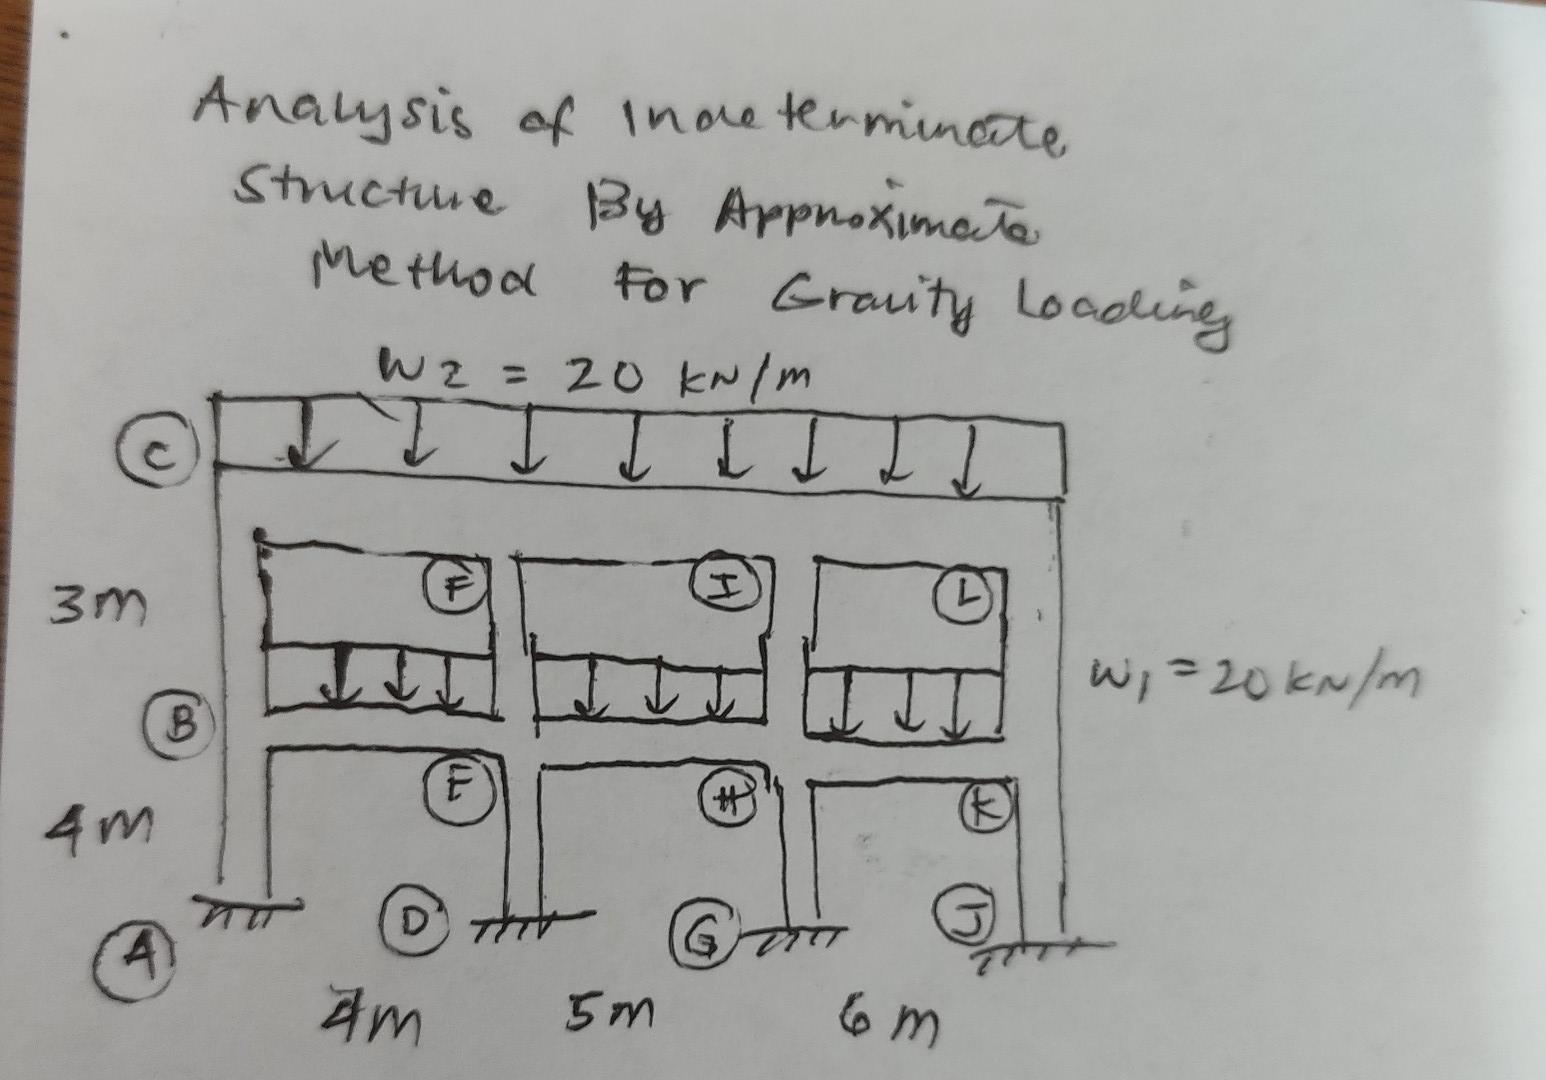 Analysis of Indeterminate
Structure By Approximate
Method For Gravity Loading
W2 = 20 kN/m
C
3m
F
I
L
W1 = 20 kN/m
B
4m
E
H
K
A
D
G
J
4m
5m
6m